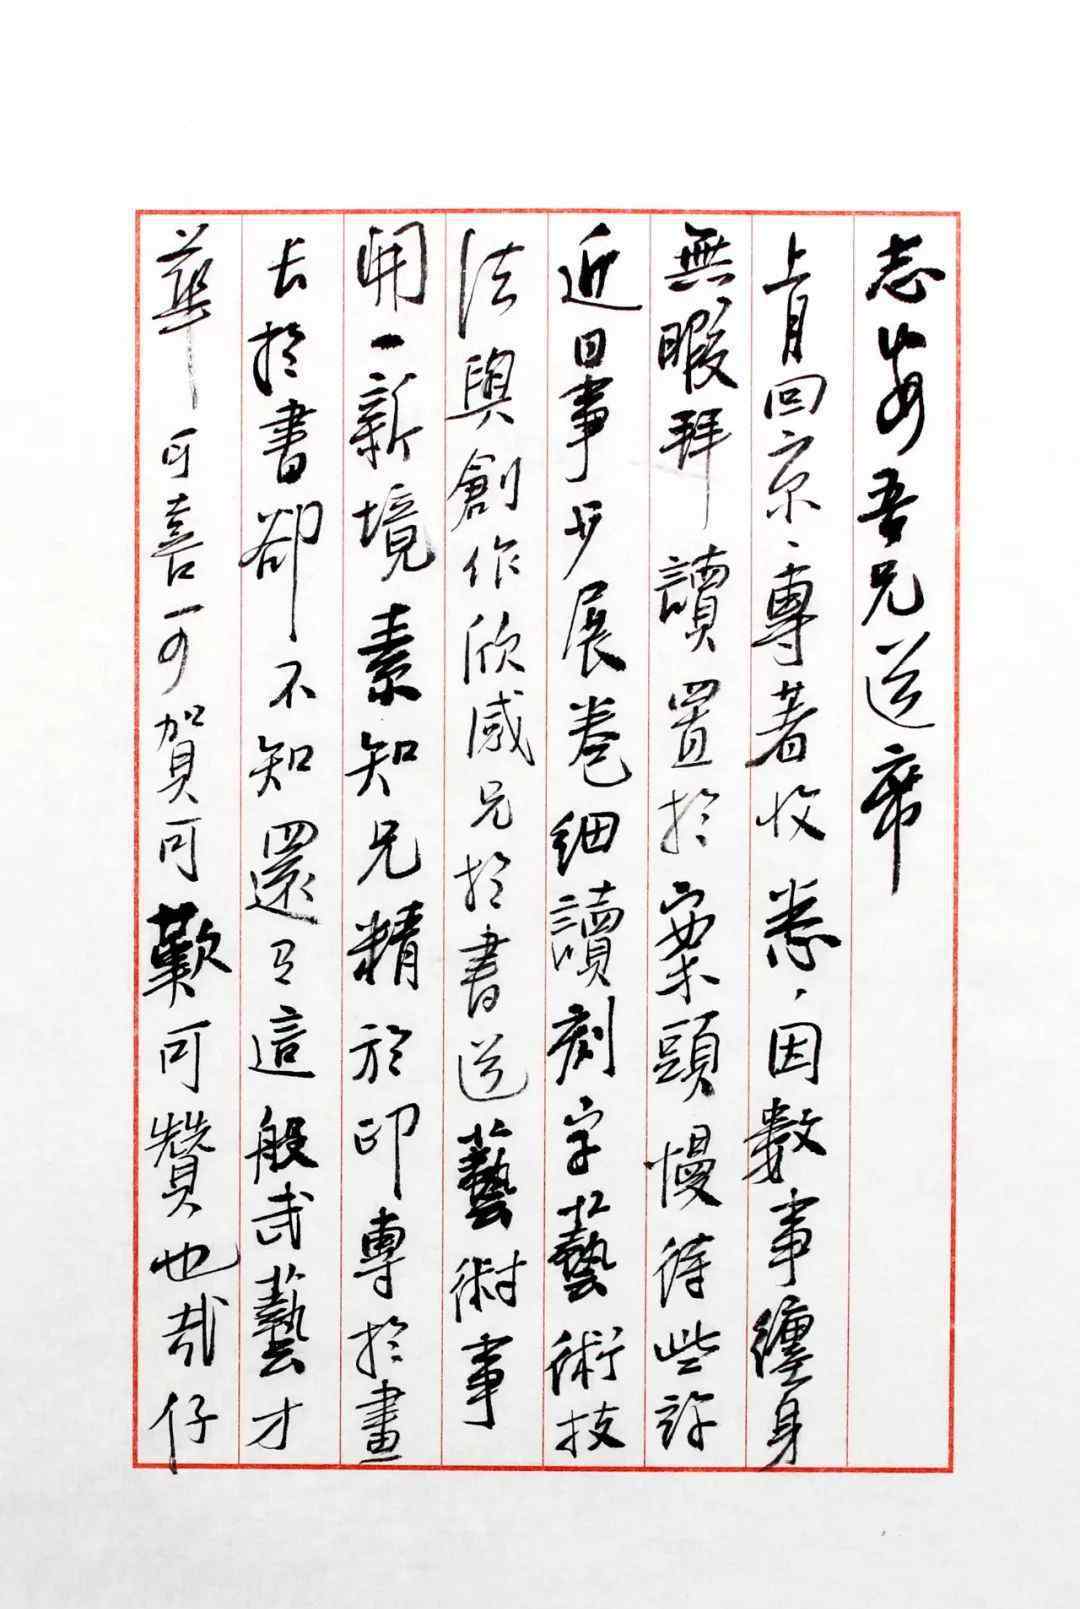 志安吾兄道席
上月回京、專著收悉、因數事纏身
無暇拜讀置於案頭慢待些許
近日事少展卷细讀刻字藝術技
法與創作欣感兄於書道藝術事
開一新境素知兄精於印專於畫
長於書卻不知還有這般武藝才
華可喜可賀可歎可贊也哉仔